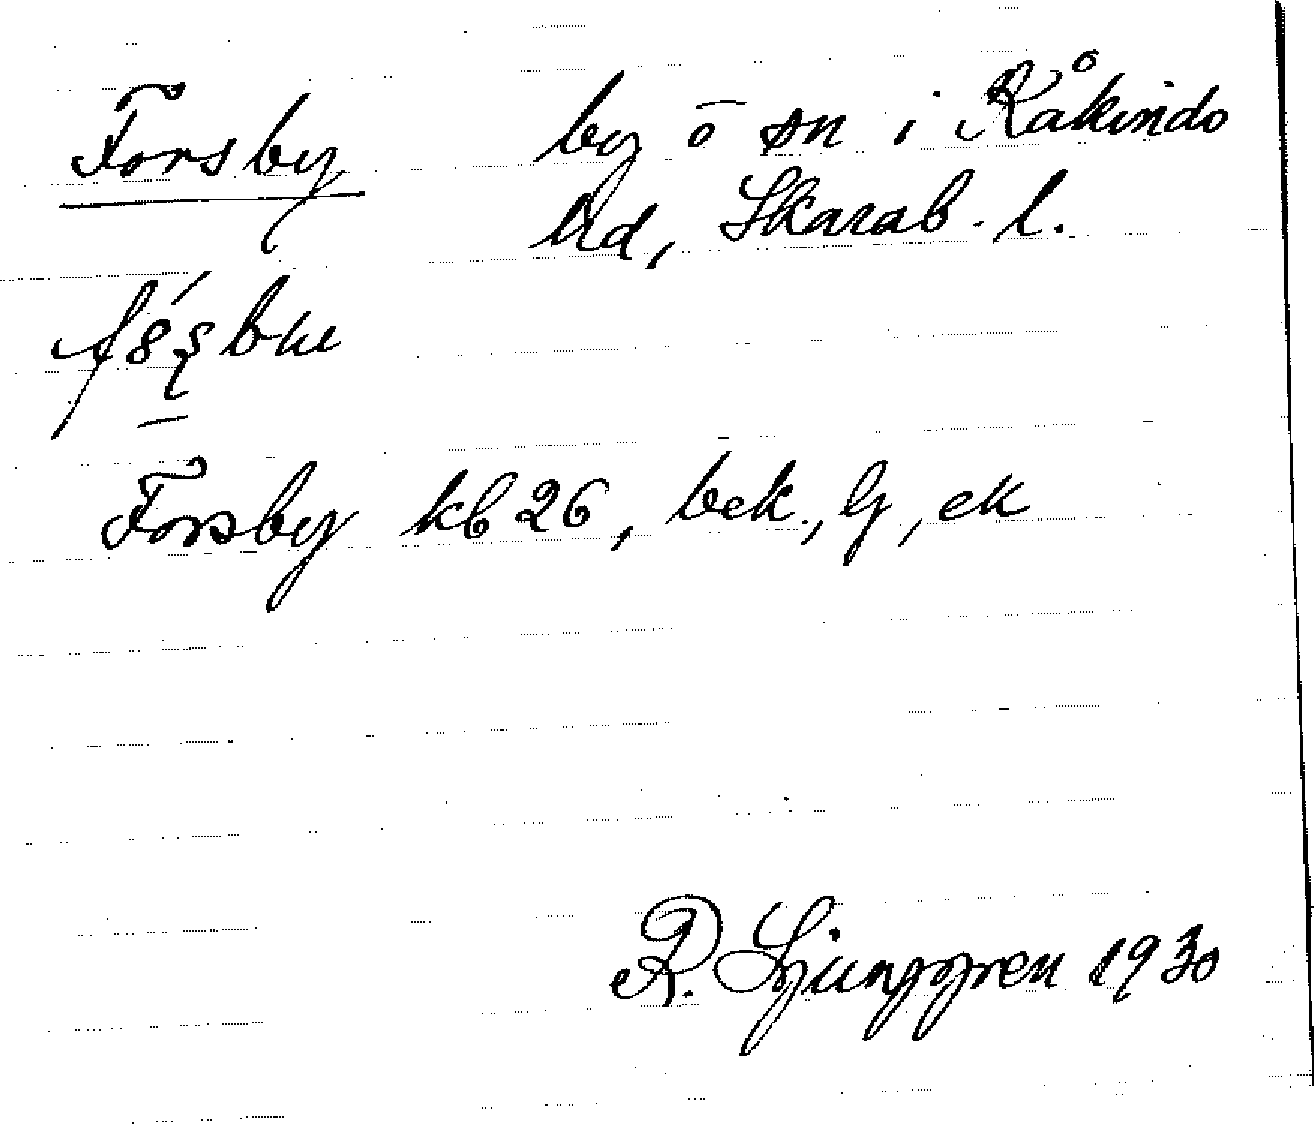 Forsby by o sn i Kåkinds
hd, Skarab. l.
Forsby kb 26, bek., G, ek
R. Ljunggren 1930